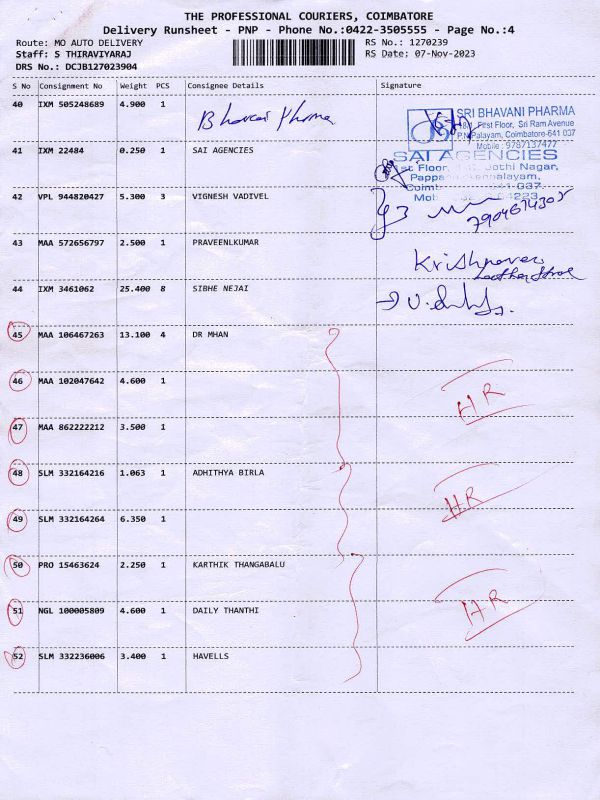 THE PROFESSIONAL COURIERS, COIMBATORE
Delivery Runsheet - PNP - Phone No.:0422-3505555 - Page No.:4
Route: MO AUTO DELIVERY RS No.: 1270239
Staff: S THIRAVIYARAJ RS Date: 07-Nov-2023
DRS No.: DCJB127023904
S No Consignment No Weight PCS Consignee Details Signature
40 IXM 505248689 4.900 1 Bhavani Pharma
SRI BHAVANI PHARMA
First Floor, Sri Ram Avenue
P.N.Palayam, Coimbatore-641 037
Mobile : 9787137477
41 IXM 22484 0.250 1 SAI AGENCIES
SAI AGENCIES
1st Floor, Jothi Nagar,
42 VPL 944820427 5.300 3 VIGNESH VADIVEL
43 MAA 572656797 2.500 1 PRAVEENLKUMAR
44 IXM 3461062 25.400 8 SIBHE NEJAI
45 MAA 106467263 13.100 4 DR MHAN
46 MAA 102047642 4.600 1
HR
47 MAA 862222212 3.500 1
48 SLM 332164216 1.063 1 ADHITHYA BIRLA
HR
49 SLM 332164264 6.350 1
50 PRO 15463624 2.250 1 KARTHIK THANGABALU
51 NGL 100005809 4.600 1 DAILY THANTHI
HR
52 SLM 332236006 3.400 1 HAVELLS